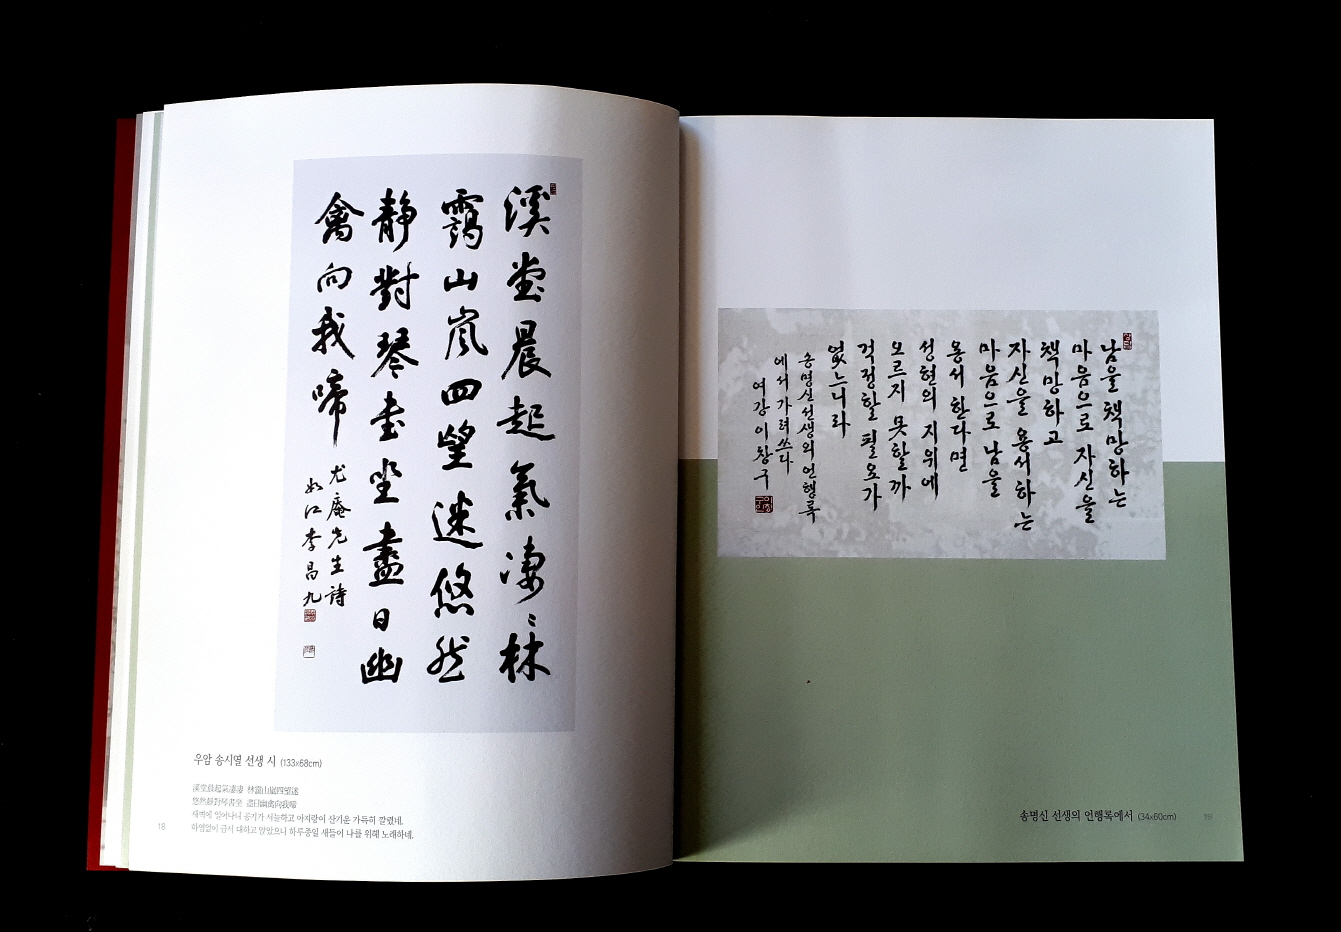 溪堂晨起氣凄〻林
靄山嵐四望迷悠然
靜對琴書坐盡日幽
禽向我啼
尤庵先生詩
李昌九
우암 송시열 선생 시 (133x68cm)
溪堂晨起氣凄凄 林靄山嵐四望迷
悠然靜對琴書坐 盡日幽禽向我啼
새벽에 일어나니 공기가 서늘하고 아지랑이 산기운 가득히 깔렸네.
하염없이 금서 대하고 앉았으니 하루종일 새들이 나를 위해 노래하네.
18
남을 책망하는
마음으로 자신을
책망하고
자신을 용서하는
마음으로 남을
용서 한다면
성현의 지위에
오르지 못할까
걱정할 필요가
없느니라
송명신선생의 언행록
에서 가려쓰다
여강 이창구
송명신 선생의 언행록에서 (34x60cm)
19